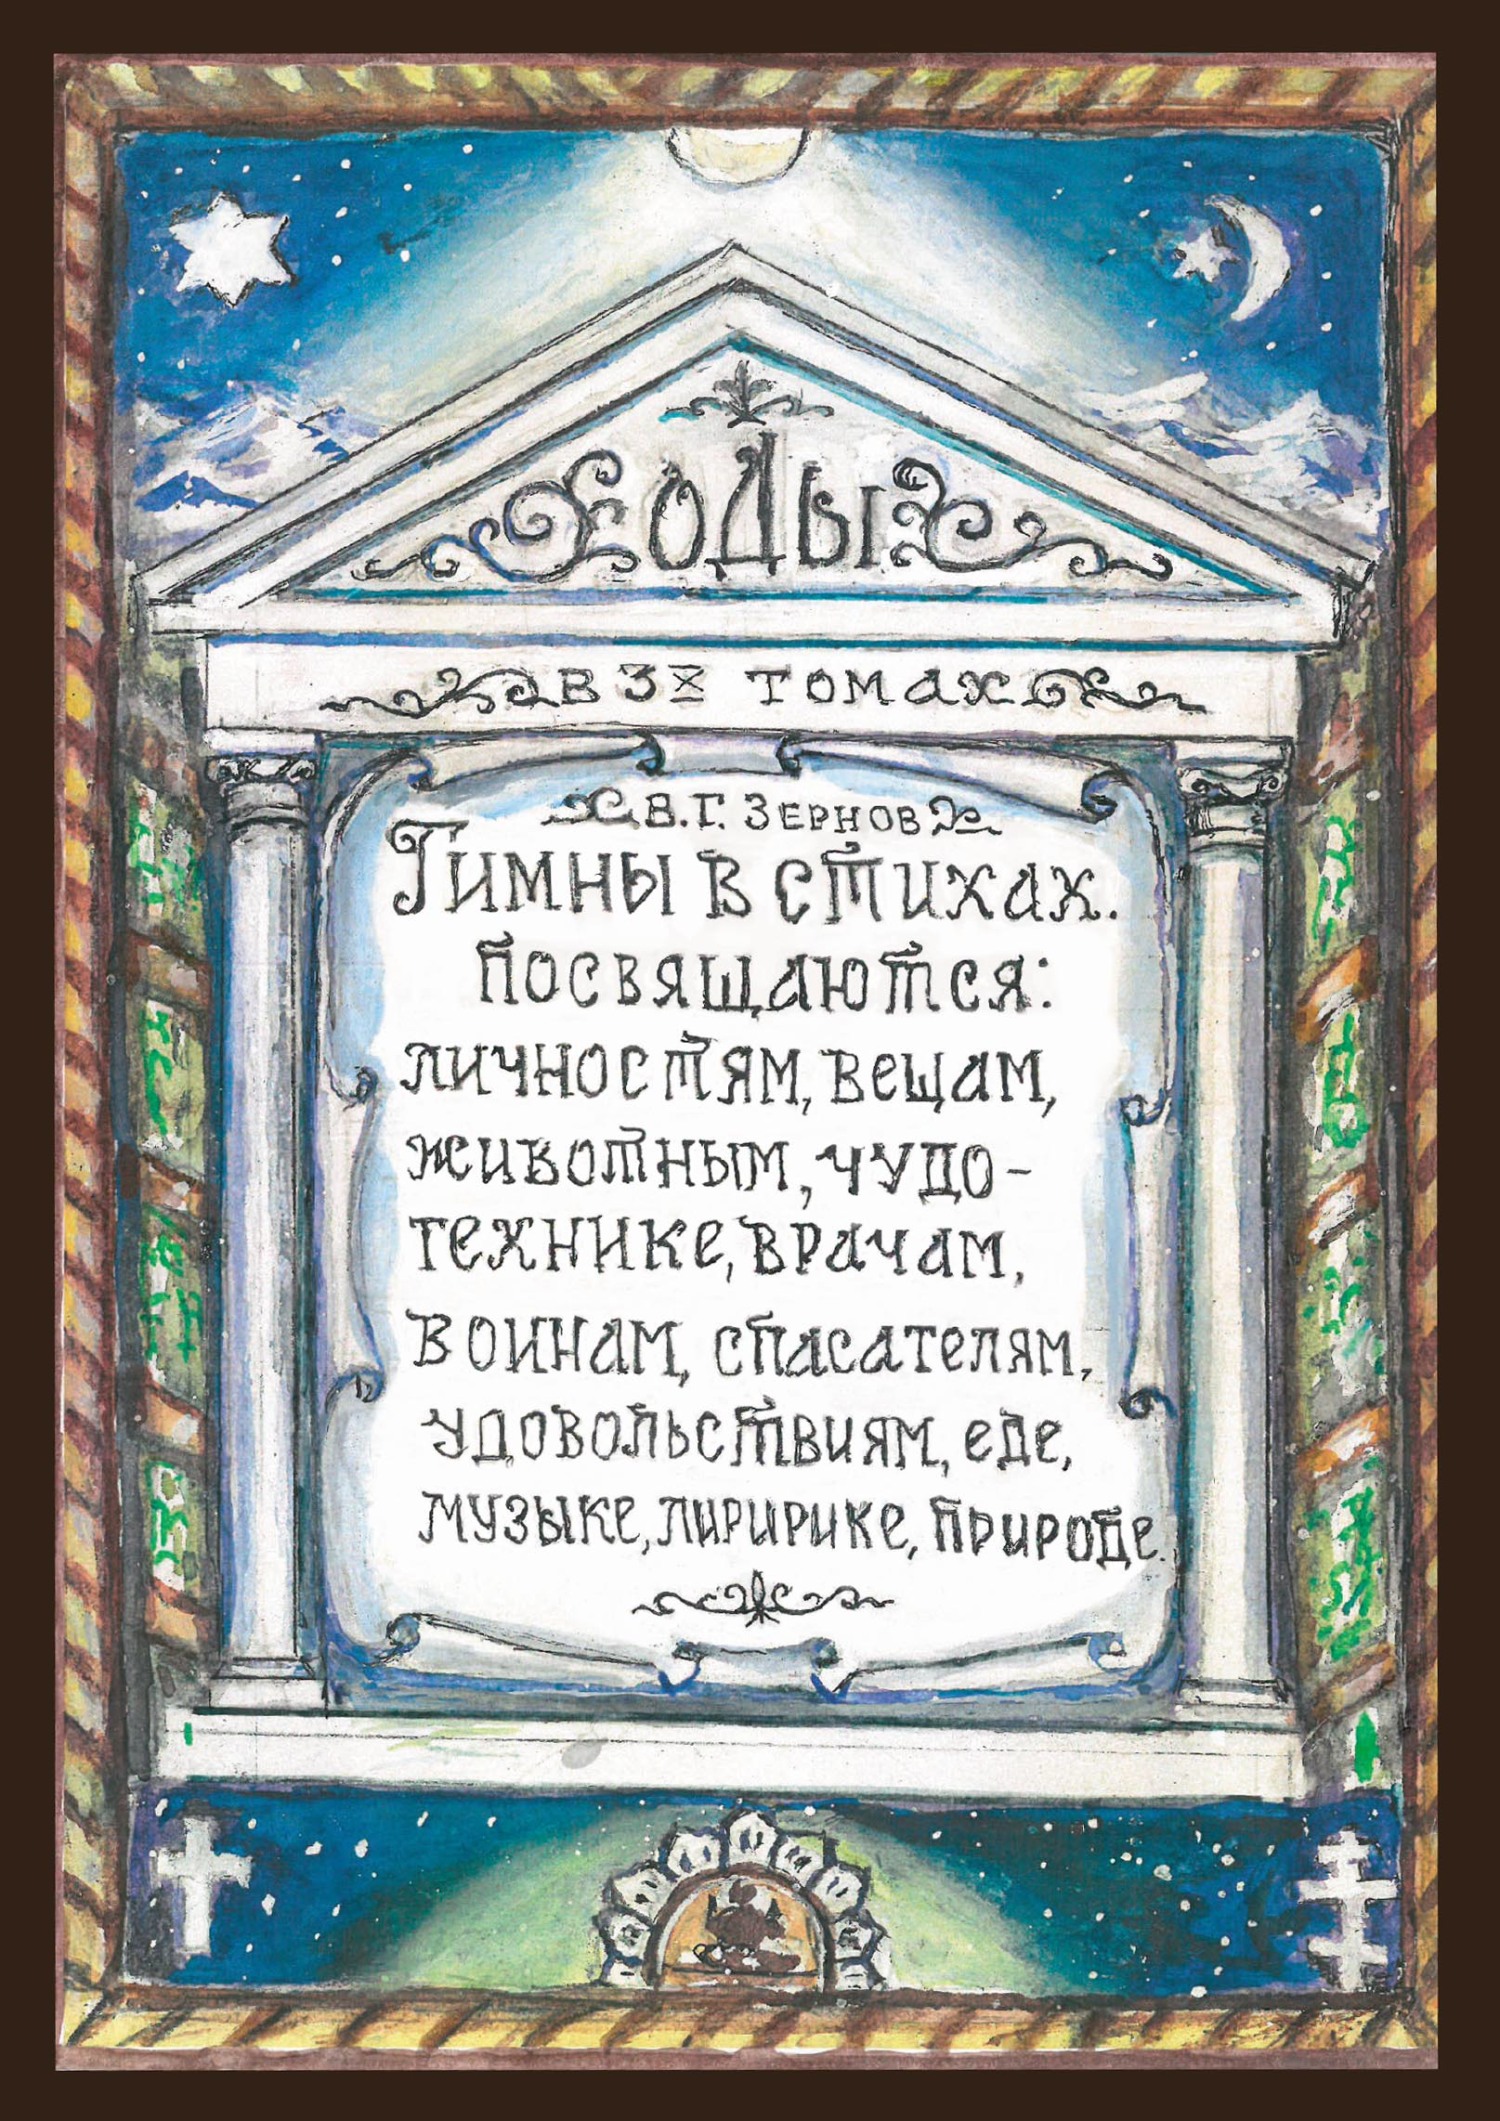 ОДЫ
В 3Х ТОМАХ
В.Г. ЗЕРНОВ
Гимны в стихах.
посвящаются:
личностям, вещам,
животным, чудо-
технике, врачам,
воинам, спасателям,
удовольствиям, еде,
музыке, лиририке, природе.